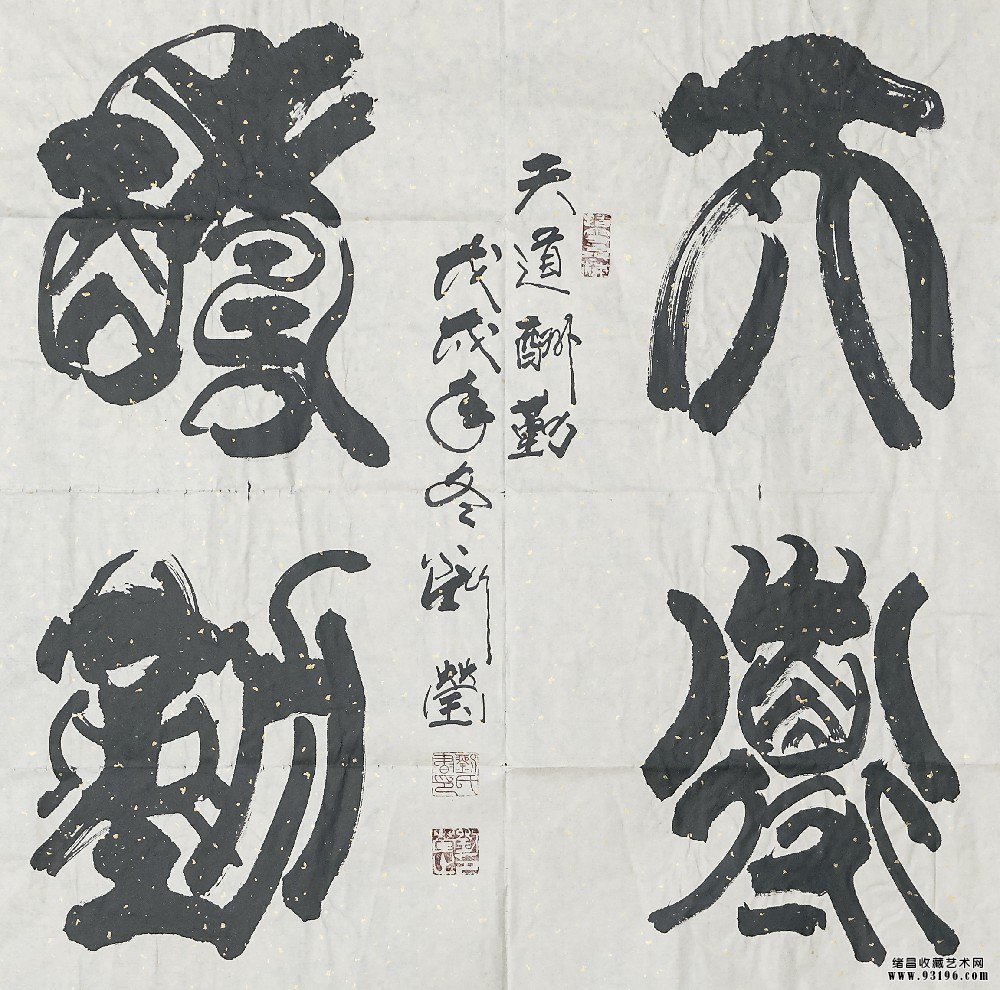 天道
酬勤
天道酬勤
戊戌年冬劉瑩
劉氏書印
绪昌收藏艺术网
www.93196.com